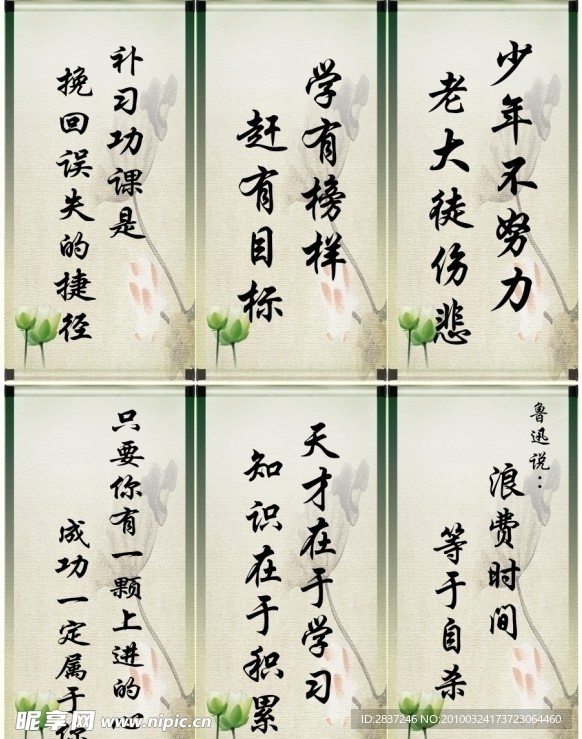 少年不努力
老大徒伤悲
学有榜样
赶有目标
补习功课是
挽回误失的捷径
鲁迅说：
浪费时间
等于自杀
天才在于学习
知识在于积累
只要你有一颗上进的心
成功一定属于你
昵享网 www.nipic.cn
ID:2837246 NO:20100324173723064460